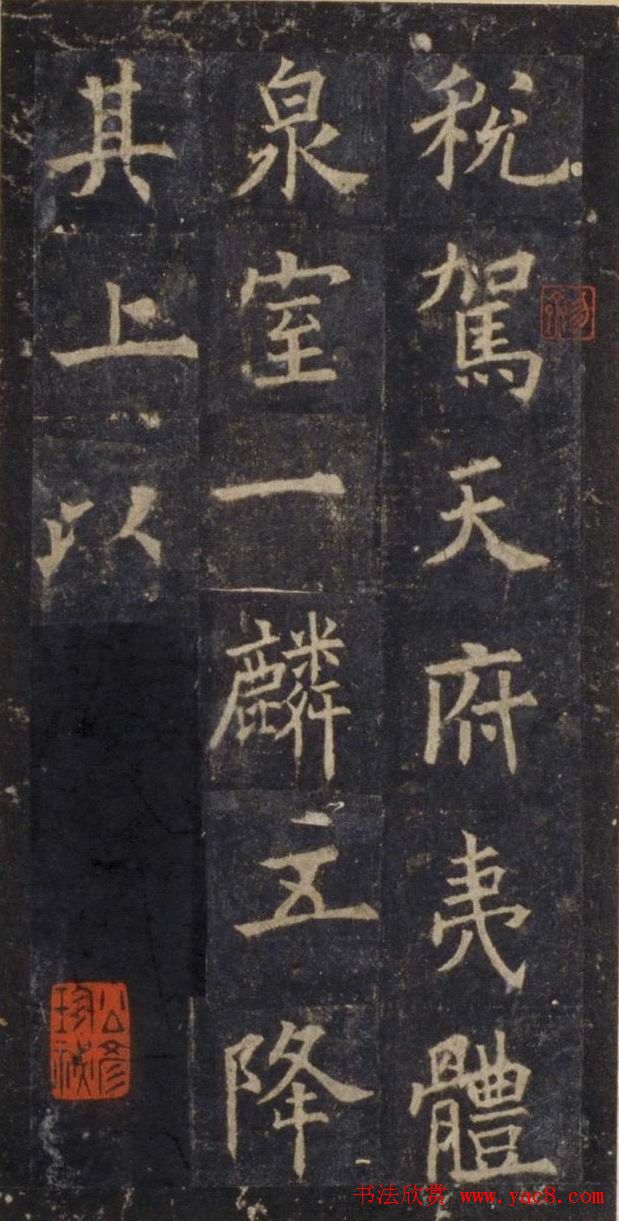 稅駕天府體
泉室一麟五降
其上以
书法欣赏 www.yac8.com